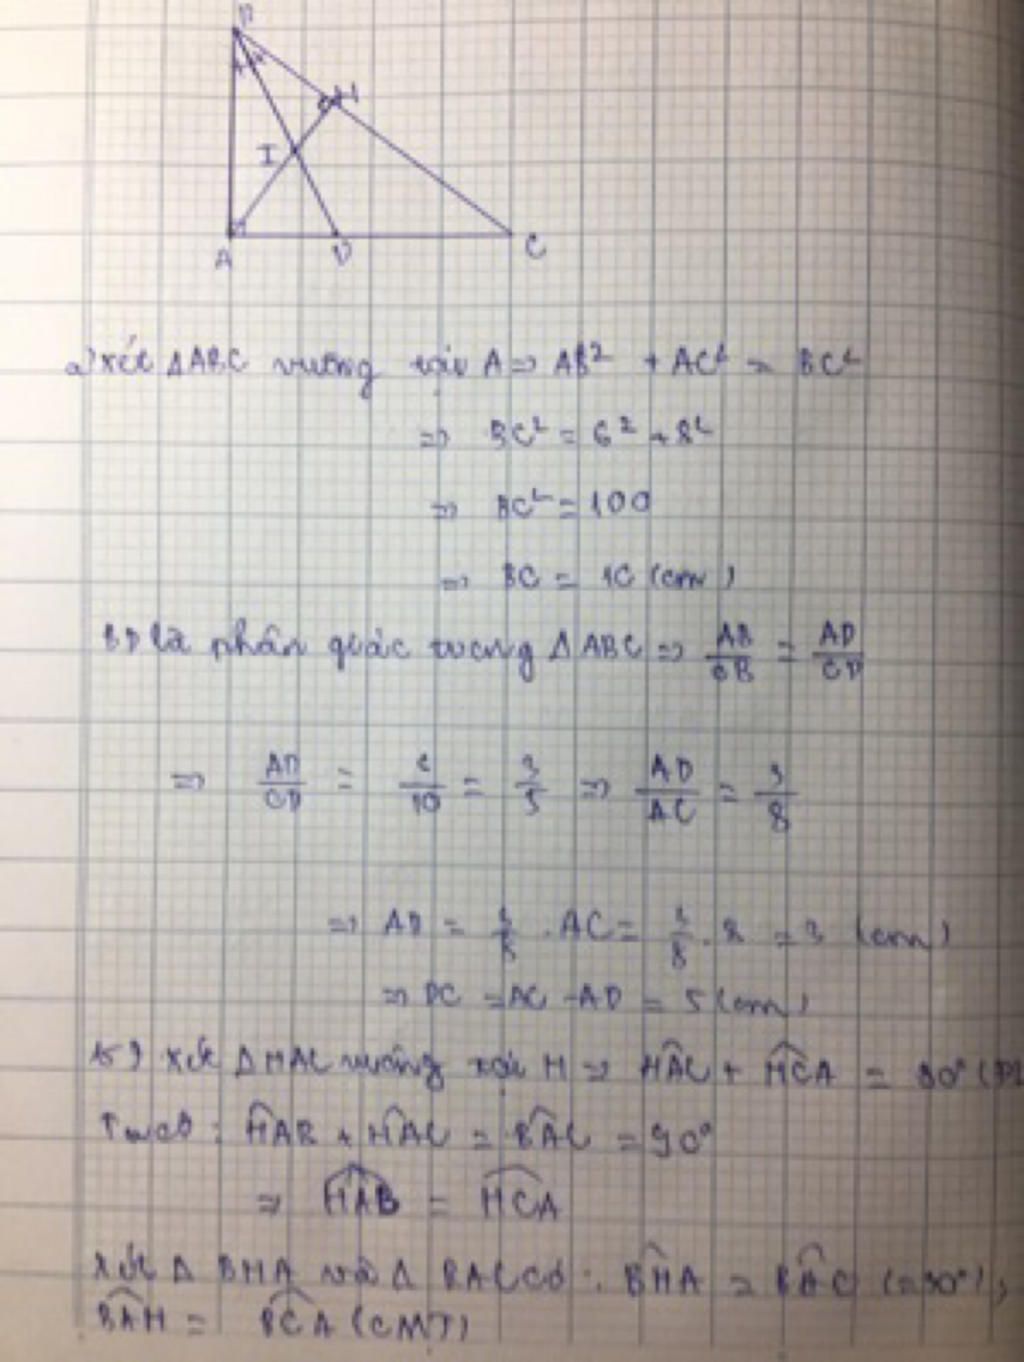 H
I
A
D
C
a) Xét ΔABC vuông tại A => AB² + AC² = BC²
=> BC² = 6² + 8²
=> BC² = 100
=> BC = 10 (cm)
BD là phân giác trong ΔABC => AB/CB = AD/CD
=> AD/CD = 6/10 = 3/5 => AD/AC = 3/8
=> AD = 3/8 . AC = 3/8 . 8 = 3 (cm)
=> DC = AC - AD = 5 (cm)
b) Xét ΔHAC vuông tại H => \widehat{HAC} + \widehat{HCA} = 90° (
Ta có : \widehat{HAB} + \widehat{HAC} = \widehat{BAC} = 90°
=> \widehat{HAB} = \widehat{HCA}
Xét Δ BHA và Δ BAC có : \widehat{BHA} = \widehat{BAC} (=90°),
\widehat{BAH} = \widehat{BCA} (CMT)